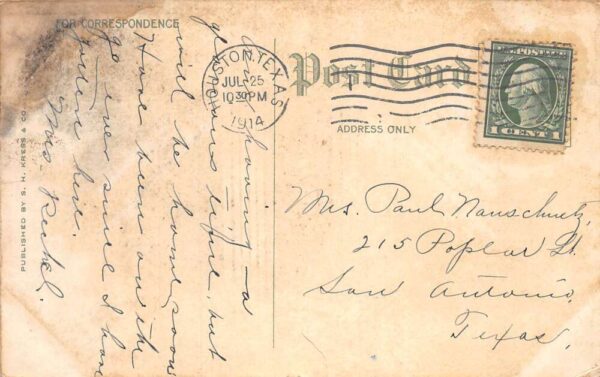 FOR CORRESPONDENCE
Am having a
glorious time, but
will be home soon
Have been on the
go ever since I have
been here.
Mrs.
PUBLISHED BY S. H. KRESS & CO
HOUSTON, TEXAS
JUL 25
10 30 PM
1914
Post Card
ADDRESS ONLY
POSTAGE
1 CENT 1
Mrs. Paul Nauschuetz,
215 Poplar St.
San Antonio,
Texas.